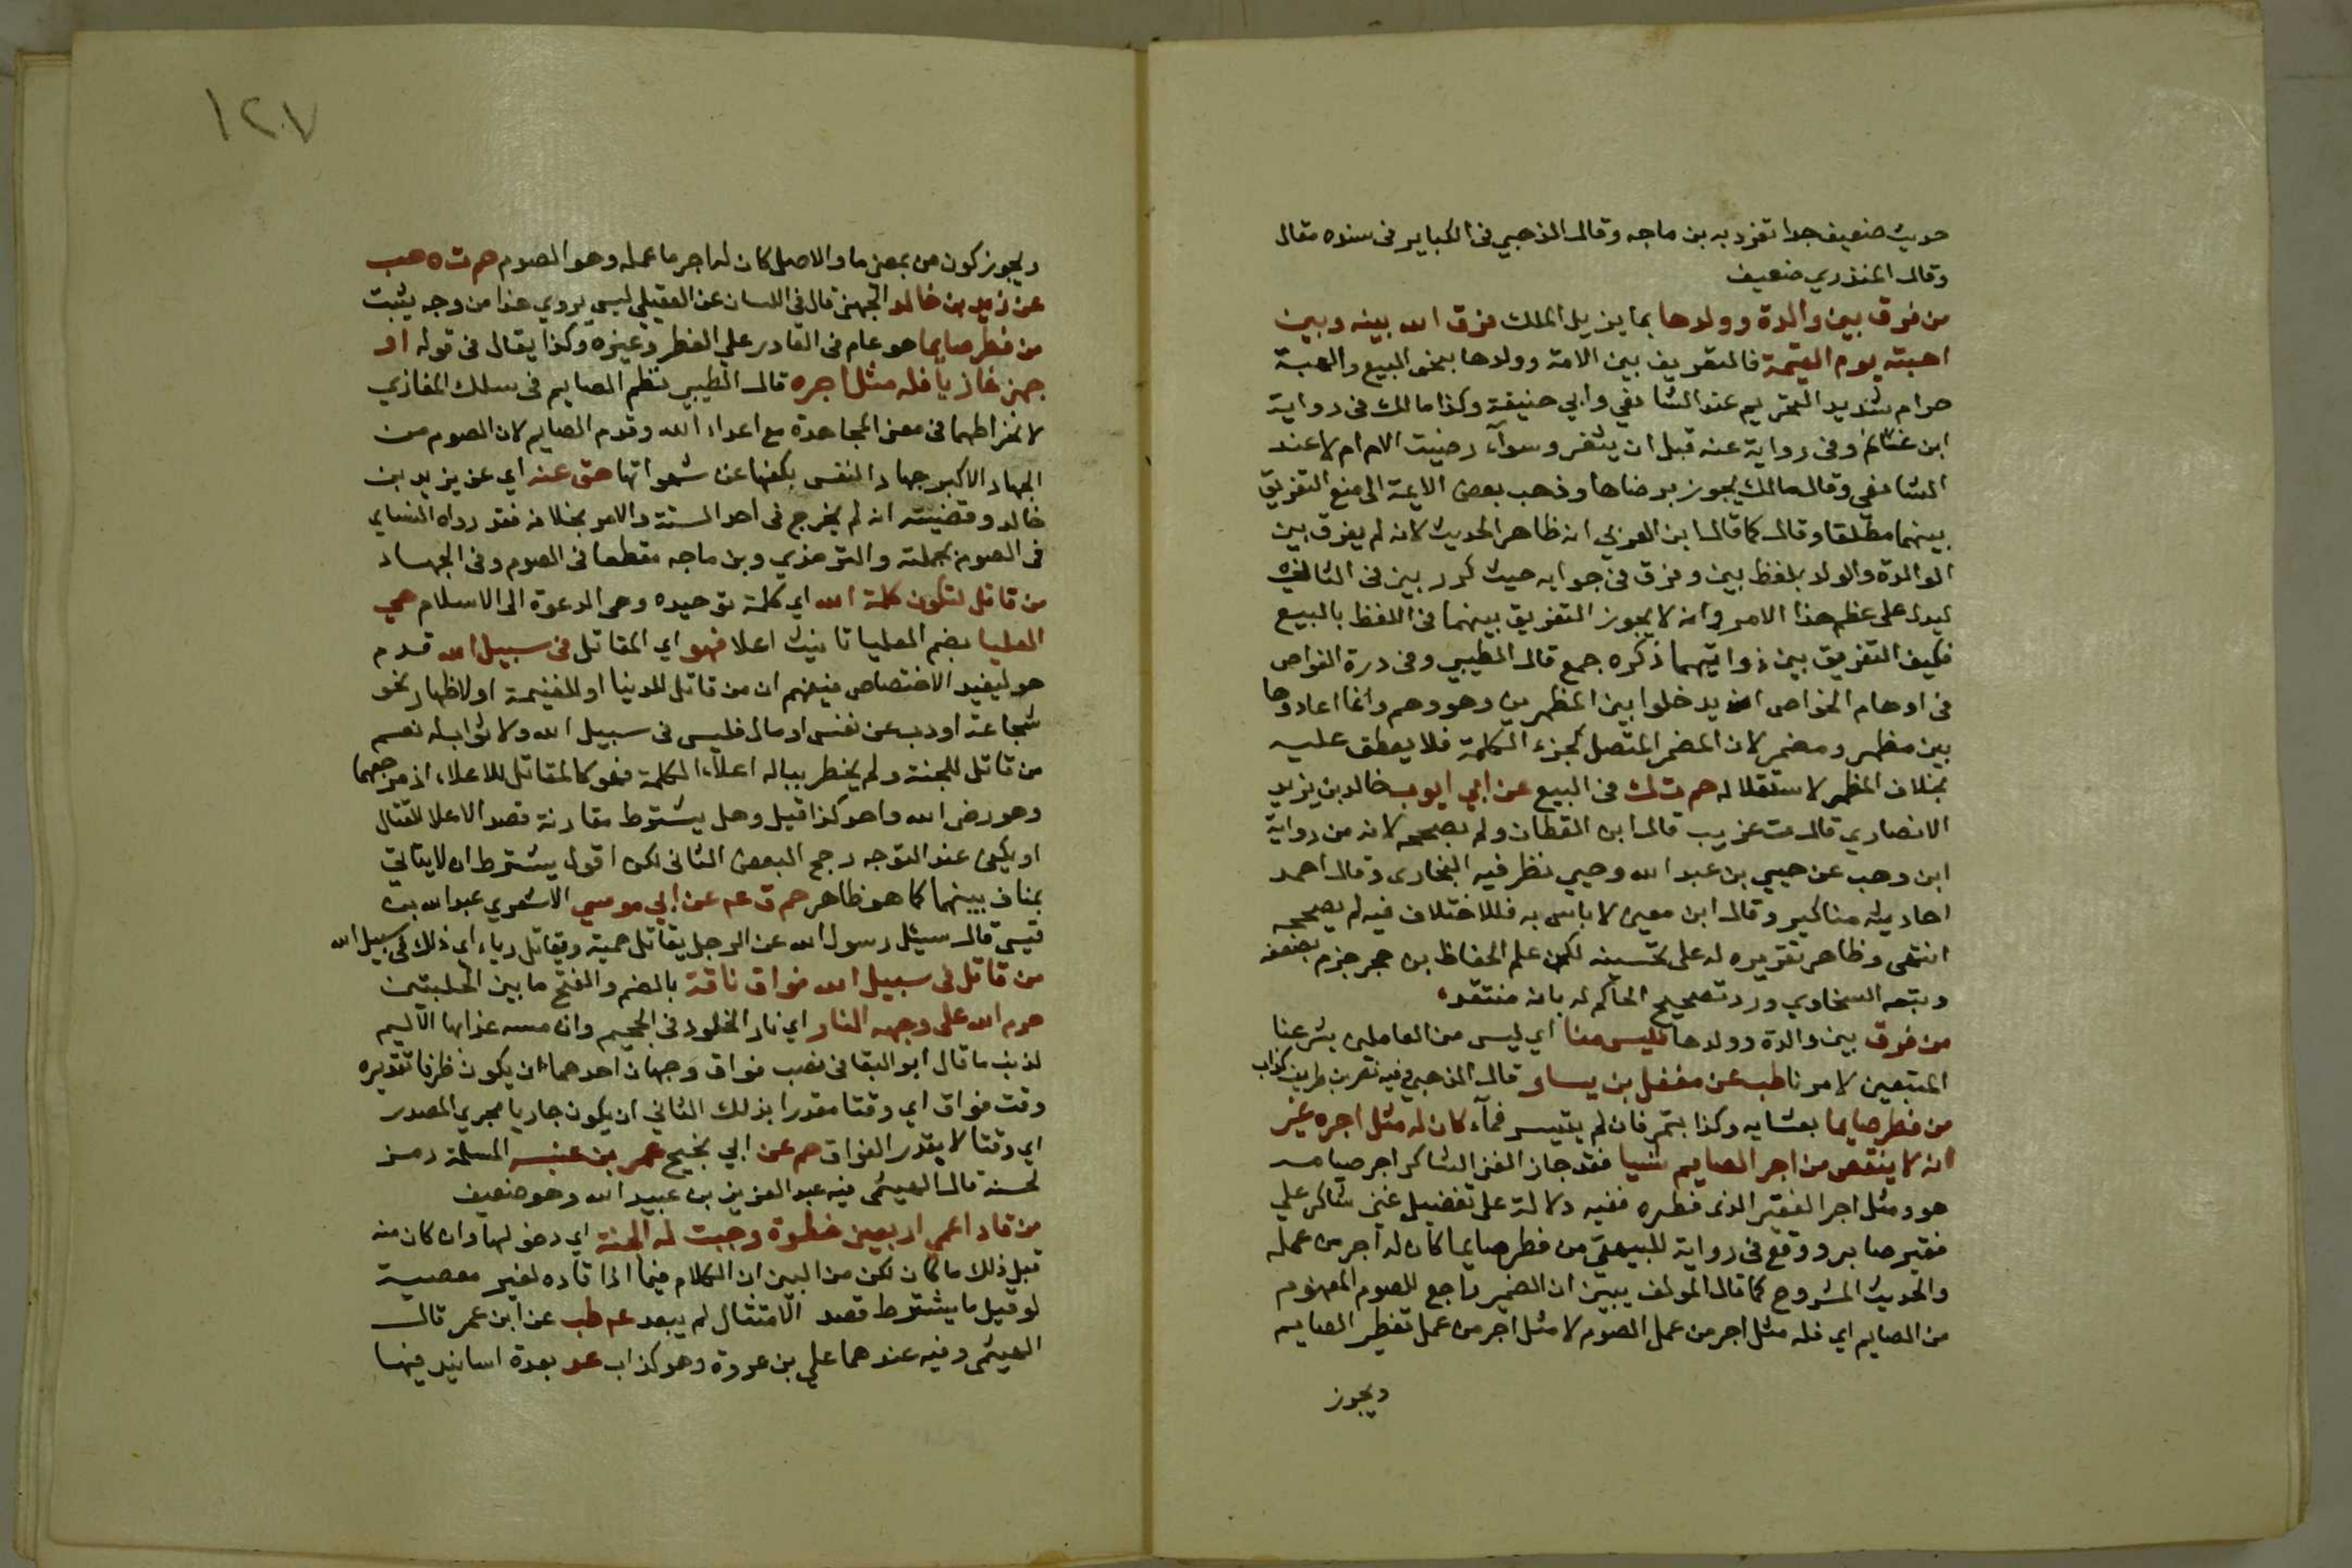 حديث ضعيف جدا تفرد به بن ماجه وقال الذهبي في الكباير في سنده مقال
وقال المنذري ضعيف
من فرق بين والدة وولدها بما يزيل الملك فرق الله بينه وبين
احبته يوم القيمة فالتفريق بين الامة وولدها بنحو البيع والهبة
حرام شديد التحريم عند الشافعي وابي حنيفة وكذا مالك في رواية
ابن غانم وفي رواية عنه قبل ان يثغر وسوآء رضيت الام ام لا عند
الشافعي وقال مالك يجوز برضاها وذهب بعض الايمة الى منع التفريق
بينهما مطلقا وقال كما قال ابن العربي انه ظاهر الحديث لانه لم يفرق بين
الوالدة والولد بلفظ بين وفرق في جوابه حيث كرر بين في الثاني
ليدل على عظم هذا الامر وانه لا يجوز التفريق بينهما في اللفظ بالبيع
فكيف التفريق بين ذواتيهما ذكره جمع قال الطيبي وفي درة الغواص
في اوهام الخواص ان يدخلوا بين المظهرين وهو وهم وانما اعادوها
بين مظهر ومضمر لان المضمر المتصل كجزء الكلمة فلا يعطف عليه
بخلاف المظهر لاستقلاله حم ت ك في البيع عن ابي ايوب خالد بن يزيد
الانصاري قال ت غريب قال ابن القطان ولم يصححه لانه من رواية
ابن وهب عن حيي بن عبد الله وحيي نظر فيه البخارى وقال احمد
احاديثه مناكير وقال ابن معين لا باس به فللاختلاف فيه لم يصححه
انتهى وظاهر تقريره له على تحسينه لكن علم الحفاظ بن حجر جزم بضعفه
وتبعه السخاوي ورد تصحيح الحاكم له بانه منتقد
من فرق بين والدة وولدها فليس منا اي ليس من العاملين بشرعنا
المتبعين لامرنا طب عن معقل بن يسار قال الذهبي فيه نصر بن طريف كذاب
من فطر صايما بعشايه وكذا بتمر فان لم يتيسر فمآء كان له مثل اجره غير
انه لا ينقص من اجر الصايم شيا فقد حاز الغني الشاكر اجر صيامه
هو ومثل اجر الفقير الذى فطره ففيه دلالة على تفضيل غني شاكر علي
فقير صابر ووقع في رواية للبيهقي من فطر صايما كان له اجر من عمله
والحديث المشروح كما قال المولف يبين ان الضمير راجع للصوم المفهوم
من الصايم اي فله مثل اجر من عمل الصوم لا مثل اجر من عمل تفطير الصايم
ويجوز
١٢٧
ويجوز كون من بمعنى ما والاصل كان له اجر ما عمله وهو الصوم حم ت ه حب
عن زيد بن خالد الجهني قال في اللسان عن العقيلي ليس يروي هذا من وجه يثبت
من فطر صايما هو عام في القادر علي الفطر وغيره وكذا يقال في قوله او
جهز غازيا فله مثل اجره قال الطيبي نظم الصايم في سلك الغازي
لانخراطهما في معنى المجاهدة مع اعداء الله وقدم الصايم لان الصوم من
الجهاد الاكبر جهاد النفس بكفها عن شهواتها هق عنه اي عن يزيد بن
خالد وقضيته انه لم يخرج في احد الستة والامر بخلافه فقد رواه النساي
في الصوم بجملته والترمذي وبن ماجه مقطعا في الصوم وفي الجهاد
من قاتل لتكون كلمة الله اي كلمة توحيده وهي الدعوة الى الاسلام هي
العليا بضم العليا تانيث اعلا فهو اي المقاتل في سبيل الله قدم
هو ليفيد الاختصاص فيفهم ان من قاتل للدنيا او للغنيمة او لاظهار نحو
شجاعة او ذب عن نفس او مال فليس في سبيل الله ولا ثواب له نعم
من قاتل للجنة ولم يخطر بباله اعلآء الكلمة فهو كالمقاتل للاعلاء اذ مرجعهما
وهو رضى الله واحد كذا قيل وهل يشترط مقارنة قصد الاعلا للقتال
او يكفي عند التوجه رجح البعض الثاني لكن اقول يشترط ان لا ياتي
بمناف بينهما كما هو ظاهر حم ق عه عن ابي موسي الاشعري عبد الله بن
قيس قال سيئل رسول الله عن الرجل يقاتل حمية ويقاتل رياء اي ذلك في سبيل الله
من قاتل في سبيل الله فواق ناقة بالضم والفتح ما بين الحلبتين
حرم الله على وجهه النار اي نار الخلود في الجحيم وان مسه عذابها الأليم
لذنب ما قال ابو البقا في نصب فواق وجهان احدهما ان يكون ظرفا تقديره
وقت فواق اي وقتا مقدرا بذلك الثاني ان يكون جاريا مجري المصدر
اي وقتا لا يقدر الفواق حم عن ابي نجيح عمر بن عنبسه السلمة رمز
لحسنه قال الهيثمى فيه عبد العزيز بن عبيد الله وهو ضعيف
من قاد اعمي اربعين خطوة وجبت له الجنة اي دخولها وان كان منه
قبل ذلك ما كان لكن من البين ان الكلام فيما اذا قاده لغير معصية
لو قيل ما يشترط قصد الامتثال لم يبعد عه طب عن ابن عمر قال
الهيثمى وفيه عندهما علي بن عروة وهو كذاب عد بعدة اسانيد فيها